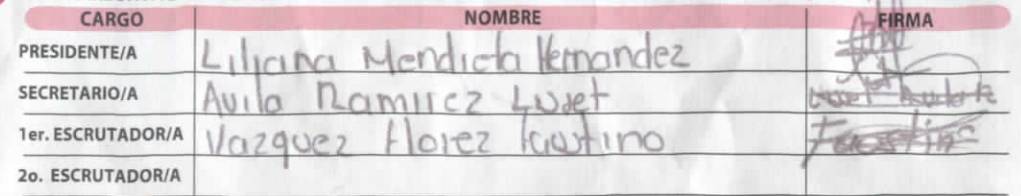 CARGO NOMBRE FIRMA
PRESIDENTE/A Liliana Mendieta Hernandez
SECRETARIO/A Avila Ramirez Luset
1er. ESCRUTADOR/A Vazquez Florez Faustino Faustino
2o. ESCRUTADOR/A